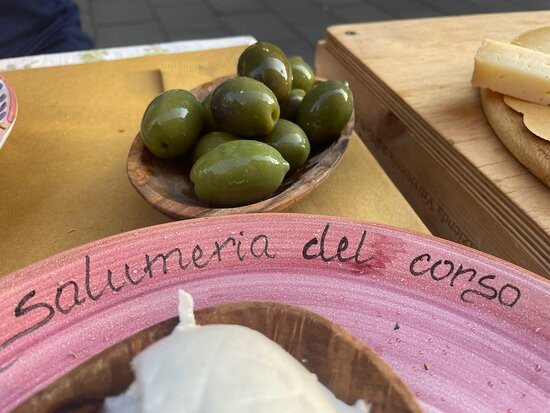 salumeria del corso